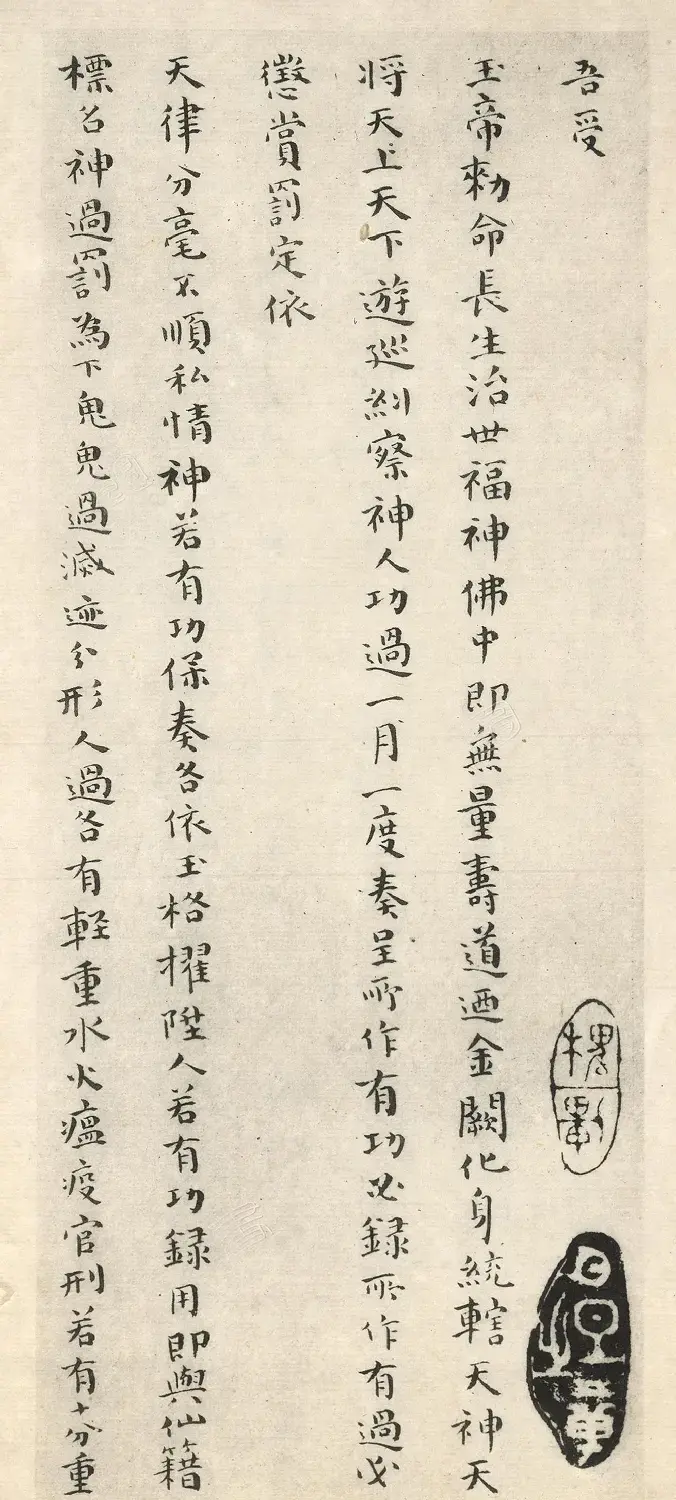 吾受
玉帝勑命長生治世福神佛中即無量壽道迺金闕化身統轄天神天
将天上天下遊廵糾察神人功過一月一度奏呈所作有功必録所作有過必
懲賞罰定依
天律分毫不順私情神若有功保奏各依玉格擢陞人若有功録用即與仙籍
標名神過罰為下鬼鬼過滅迹分形人過各有軽重水火瘟疫官刑若有十分重